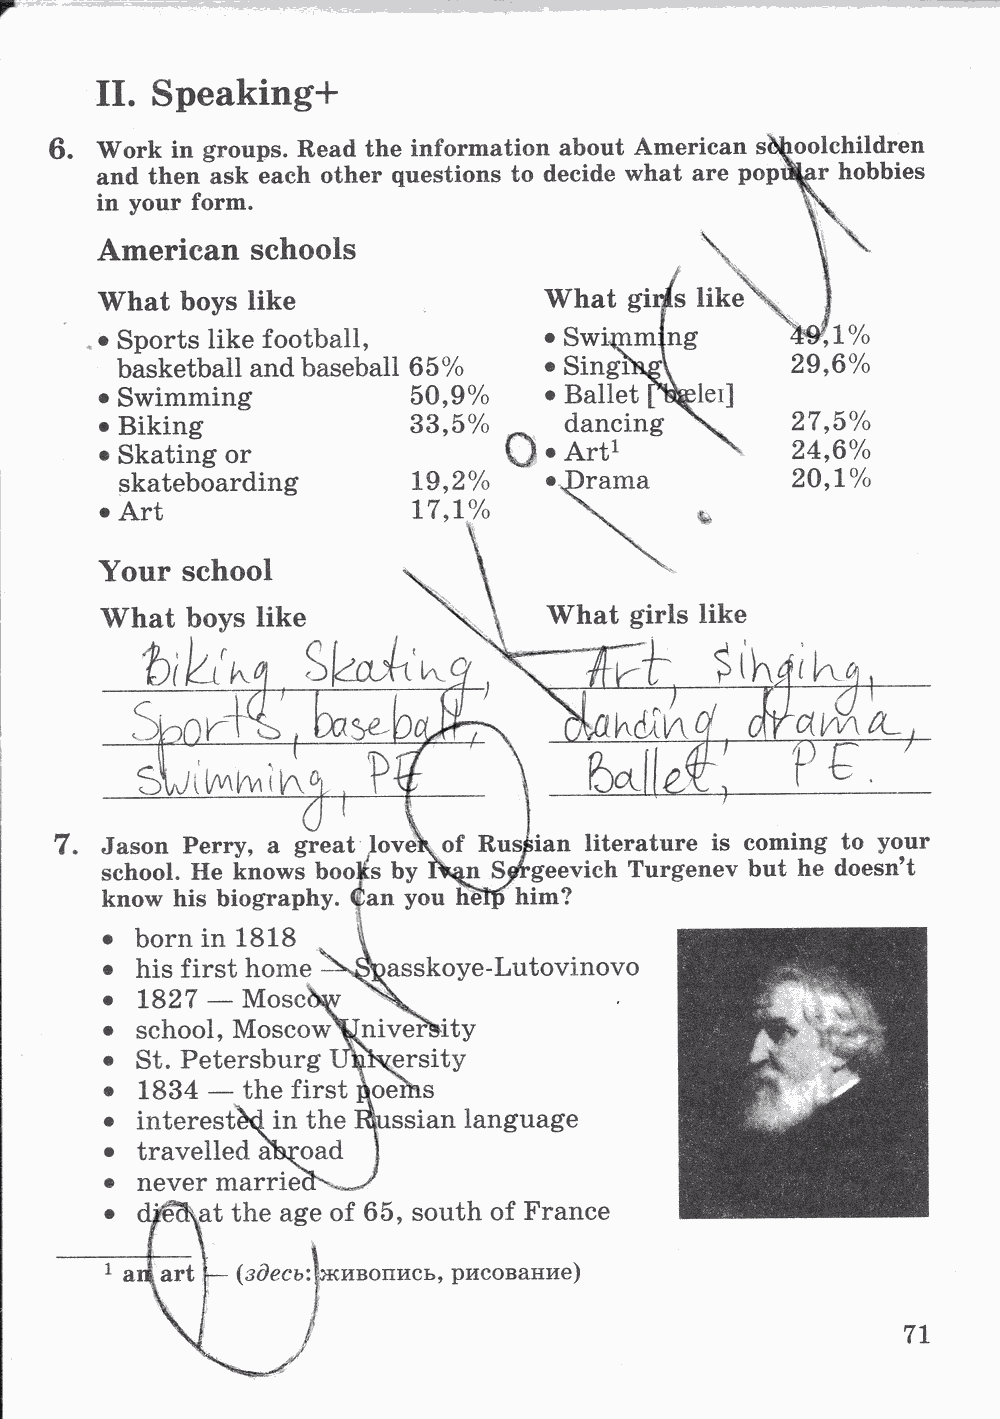 II. Speaking+
6. Work in groups. Read the information about American schoolchildren
and then ask each other questions to decide what are popular hobbies
in your form.
American schools
What boys like
• Sports like football,
basketball and baseball 65%
• Swimming 50,9%
• Biking 33,5%
• Skating or
skateboarding 19,2%
• Art 17,1%
What girls like
• Swimming 49,1%
• Singing 29,6%
• Ballet ['bæleɪ]
dancing 27,5%
• Art¹ 24,6%
• Drama 20,1%
Your school
What boys like
Biking, Skating,
Sports, baseball,
swimming, PE
What girls like
Art, singing,
dancing, drama,
Ballet, PE.
7. Jason Perry, a great lover of Russian literature is coming to your
school. He knows books by Ivan Sergeevich Turgenev but he doesn't
know his biography. Can you help him?
• born in 1818
• his first home — Spasskoye-Lutovinovo
• 1827 — Moscow
• school, Moscow University
• St. Petersburg University
• 1834 — the first poems
• interested in the Russian language
• travelled abroad
• never married
• died at the age of 65, south of France
¹ an art — (здесь: живопись, рисование)
71